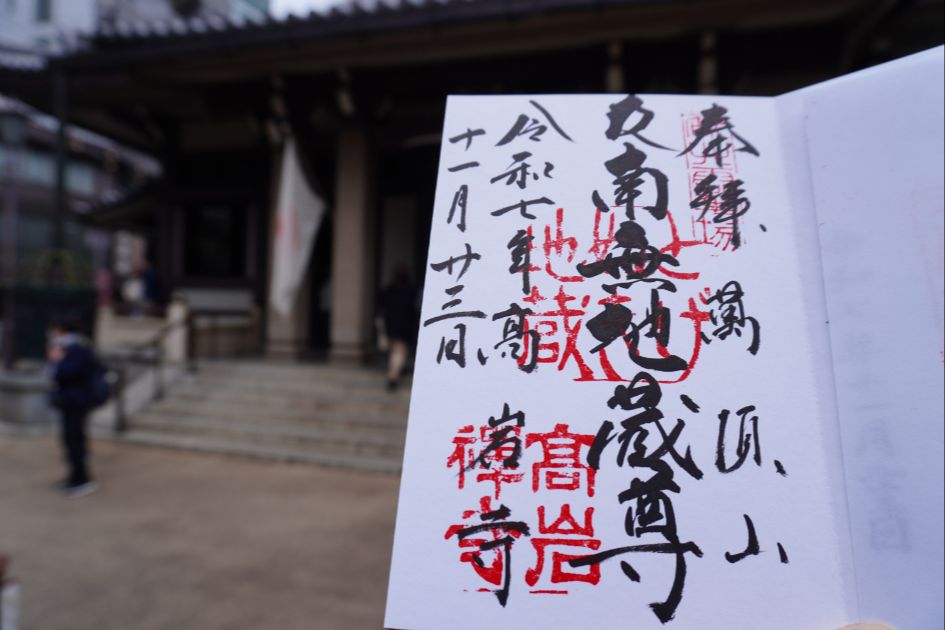 奉拝 萬頂山
南無地蔵尊
令和七年 高岩寺
十一月廿三日
地蔵
髙岩
禪寺